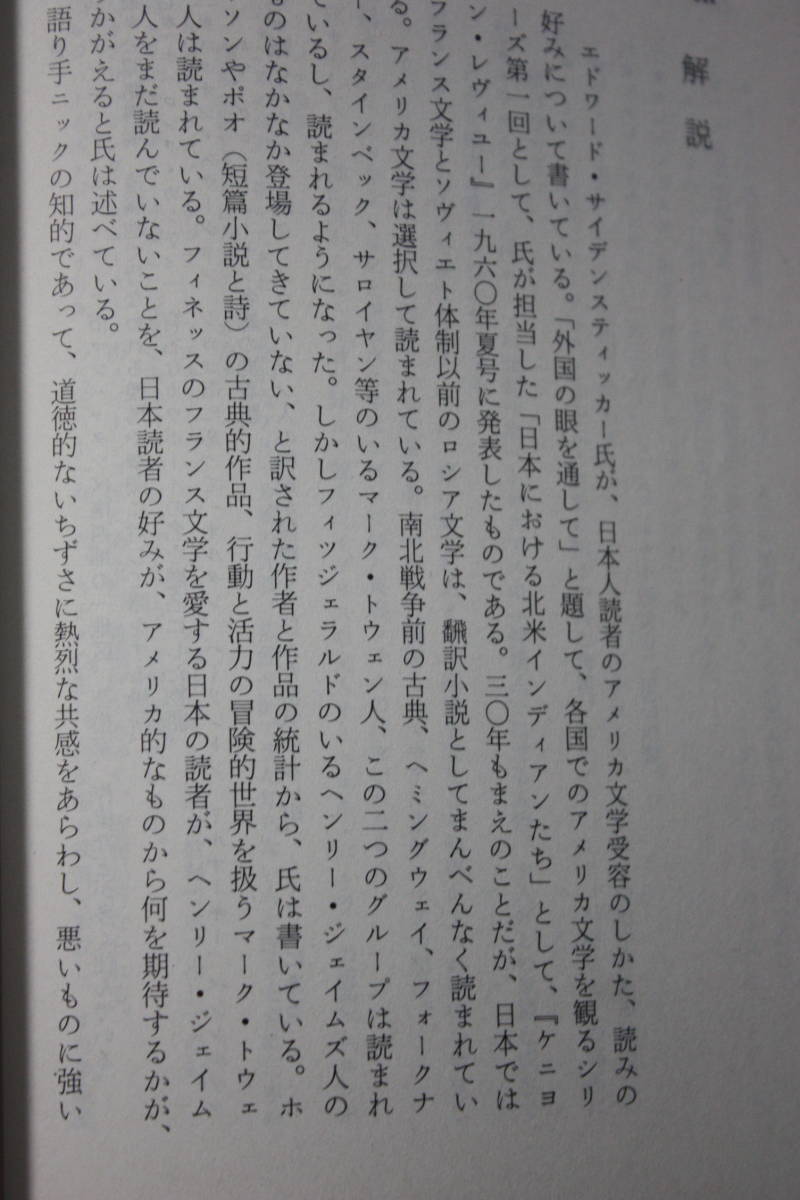 解説
エドワード・サイデンスティッカー氏が、日本人読者のアメリカ文学受容のしかた、読みの
好みについて書いている。「外国の眼を通して」と題して、各国でのアメリカ文学を観るシリ
ーズ第一回として、氏が担当した「日本における北米インディアンたち」として、『ケニヨ
ン・レヴィユー』一九六〇年夏号に発表したものである。三〇年もまえのことだが、日本では
フランス文学とソヴィエト体制以前のロシア文学は、飜訳小説としてまんべんなく読まれてい
る。アメリカ文学は選択して読まれている。南北戦争前の古典、ヘミングウェイ、フォークナ
ー、スタインベック、サロイヤン等のいるマーク・トウェン人、この二つのグループは読まれ
ているし、読まれるようになった。しかしフィツジェラルドのいるヘンリー・ジェイムズ人の
ものはなかなか登場してきていない、と訳された作者と作品の統計から、氏は書いている。ホ
ソンやポオ（短篇小説と詩）の古典的作品、行動と活力の冒険的世界を扱うマーク・トウェ
人は読まれている。フィネッスのフランス文学を愛する日本の読者が、ヘンリー・ジェイム
人をまだ読んでいないことを、日本読者の好みが、アメリカ的なものから何を期待するかが、
かがえると氏は述べている。
語り手ニックの知的であって、道徳的ないちずさに熱烈な共感をあらわし、悪いものに強い